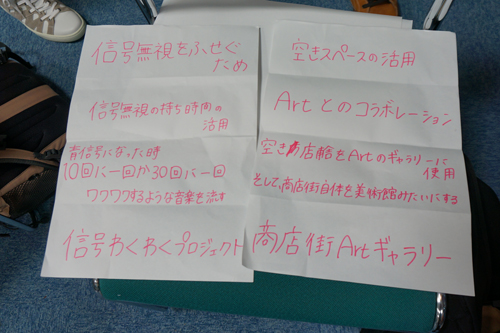 信号無視をふせぐ
ため
信号無視の待ち時間の
活用
青信号になった時
10回に一回か30回に一回
ワクワクするような音楽を流す
信号わくわくプロジェクト
空きスペースの活用
Artとのコラボレーション
空き店舗をArtのギャラリーに
使用
そして、商店街自体を美術館みたいにする
商店街Artギャラリー